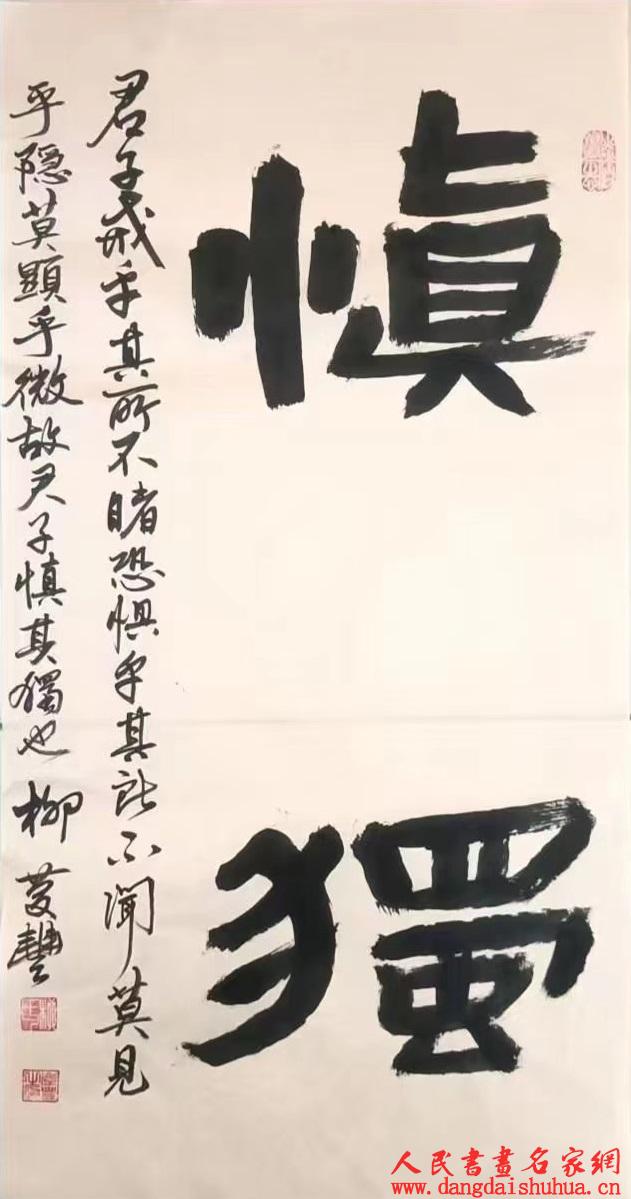 愼
獨
君子戒乎其所不睹恐惧乎其所不闻莫見
乎隐莫顯乎微故君子慎其獨也 柳 豐
人民書畫名家網
www.dangdaishuhua.cn